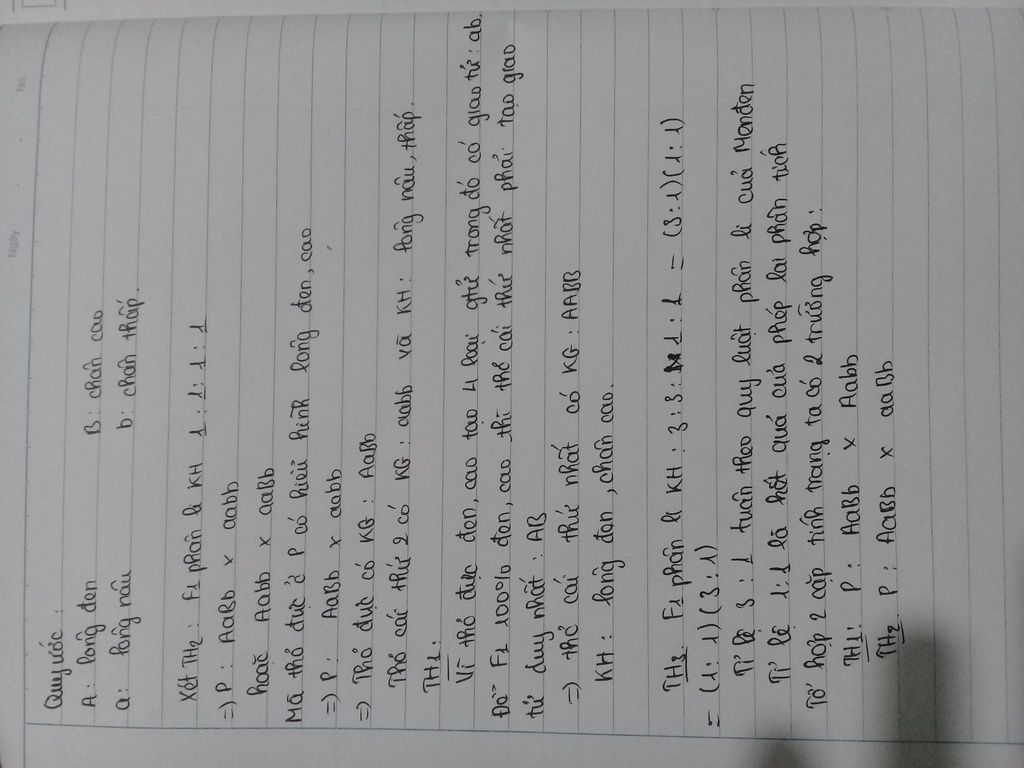 No.
Ngày
Quy ước:
A: lông đen B: chân cao
a: lông nâu b: chân thấp.
Xét TH2: F1 phân li KH 1:1:1:1
=) P: AaBb x aabb
hoặc Aabb x aaBb
Mà thỏ đực ở P có kiểu hình lông đen, cao
=) P: AaBb x aabb
=) Thỏ đực có KG: AaBb
Thỏ cái thứ 2 có KG: aabb và KH: lông nâu, thấp.
TH1:
Vì thỏ đực đen, cao tạo 4 loại gtử trong đó có giao tử: ab.
Để F1 100% đen, cao thì thỏ cái thứ nhất phải tạo giao
tử duy nhất: AB
=) thỏ cái thứ nhất có KG: AABB
KH: lông đen, chân cao.
TH3 F1 phân li KH: 3:3:1:1 = (3:1)(1:1)
= (1:1)(3:1)
Tỉ lệ 3:1 tuân theo quy luật phân li của Menđen
Tỉ lệ 1:1 là kết quả của phép lai phân tích
Tổ hợp 2 cặp tính trạng ta có 2 trường hợp:
TH1: P: AaBb x Aabb
TH2: P: AaBb x aaBb